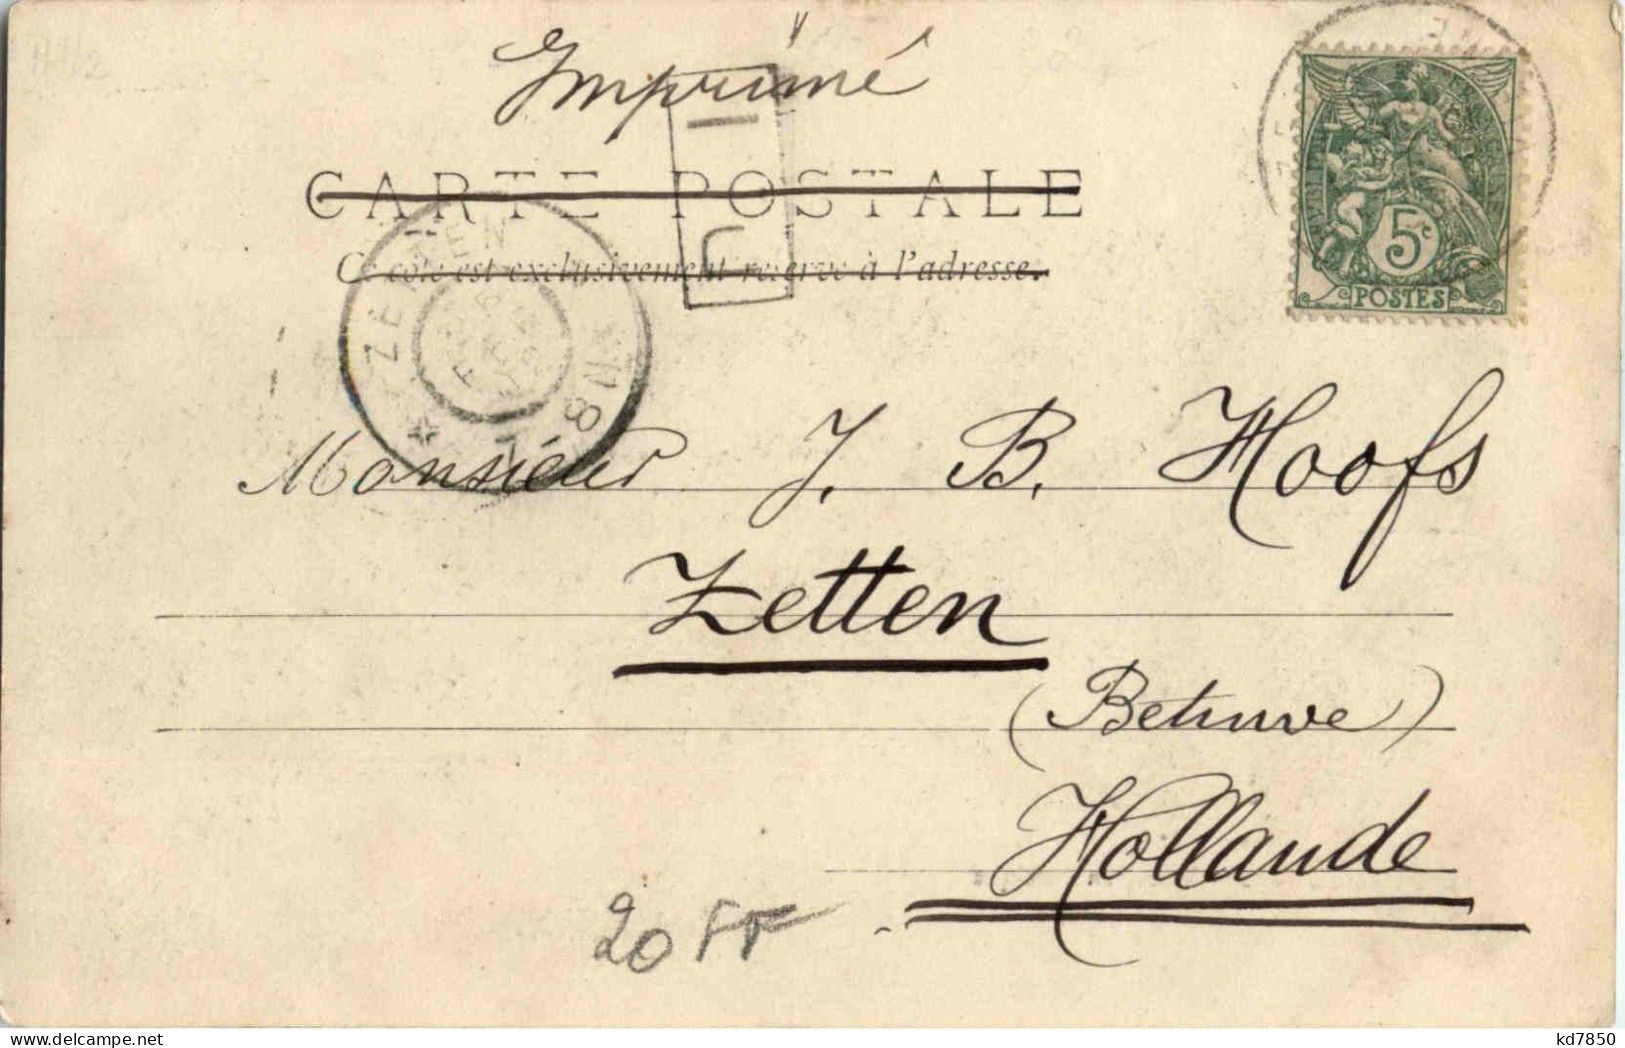 Imprimé
CARTE POSTALE
Ce côté est exclusivement réservé à l'adresse.
5c
POSTES
ZETTEN
8 N
Monsieur J. B. Hoofs
Zetten
(Betuwe)
Hollande
20 FF
kd7850